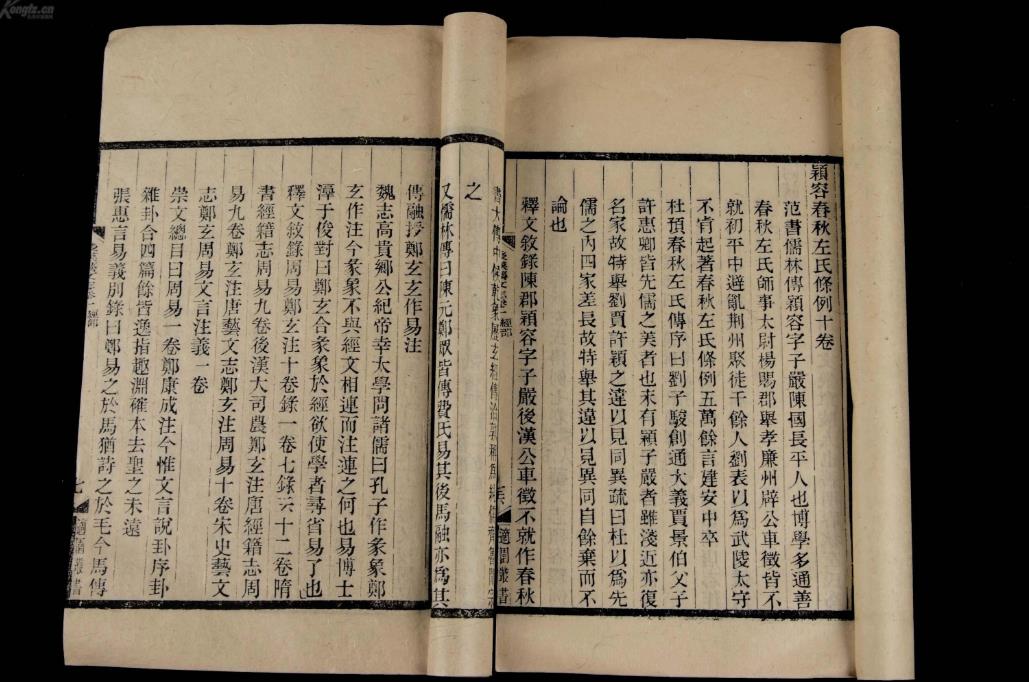 穎容春秋左氏條例十卷
范書儒林傳穎容字子嚴陳國長平人也博學多通善
春秋左氏師事太尉楊賜郡舉孝廉州辟公車徵皆不
就初平中避亂荆州聚徒千餘人劉表以爲武陵太守
不肯起著春秋左氏條例五萬餘言建安中卒
杜預春秋左氏傳序曰劉子駿創通大義賈景伯父子
許惠卿皆先儒之美者也末有穎子嚴者雖淺近亦復
名家故特舉劉賈許穎之違以見同異疏曰杜以爲先
儒之内四家差長故特舉其違以見異同自餘棄而不
論也
釋文敘錄陳郡穎容字子嚴後漢公車徵不就作春秋
適園叢書
之
又儒林傳曰陳元鄭眾皆傳費氏易其後馬融亦爲其
傳融授鄭玄玄作易注
魏志高貴鄉公紀帝幸太學問諸儒曰孔子作彖象鄭
玄作注今彖象不與經文相連而注連之何也易博士
淳于俊對曰鄭玄合彖象於經欲使學者尋省易了也
釋文敘錄周易鄭玄注十卷錄一卷七錄云十二卷隋
書經籍志周易九卷後漢大司農鄭玄注唐經籍志周
易九卷鄭玄注唐藝文志鄭玄注周易十卷宋史藝文
志鄭玄周易文言注義一卷
崇文總目曰周易一卷鄭康成注今惟文言說卦序卦
雜卦合四篇餘皆逸指趣淵確本去聖之未遠
張惠言易義別錄曰鄭易之於馬猶詩之於毛今馬傳
七
適園叢書
Kongfz.cn